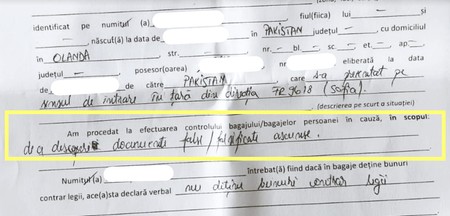 identificat pe numitul (a) fiul(fiica) lui — şi
— născut(ă) la data de în PAKISTAN judeţul — , cu domiciliul
în OLANDA , str. nr. – bl. – sc. – et. – ap. –
judeţul — posesor(oarea) eliberată la data
de de către PAKISTAN , care s-a prezentat pe
sensul de intrare în ţară din direcţia (Sofia).
(descrierea pe scurt a situaţiei)
Am procedat la efectuarea controlului bagajului/bagajelor persoanei în cauză, în scopul:
de a descoperi documente false/falsificate ascunse.
Numitul(a) întrebat(ă) fiind dacă în bagaje deţine bunuri
contrar legii, ace(a)sta declară verbal nu deţine bunuri contrar legii